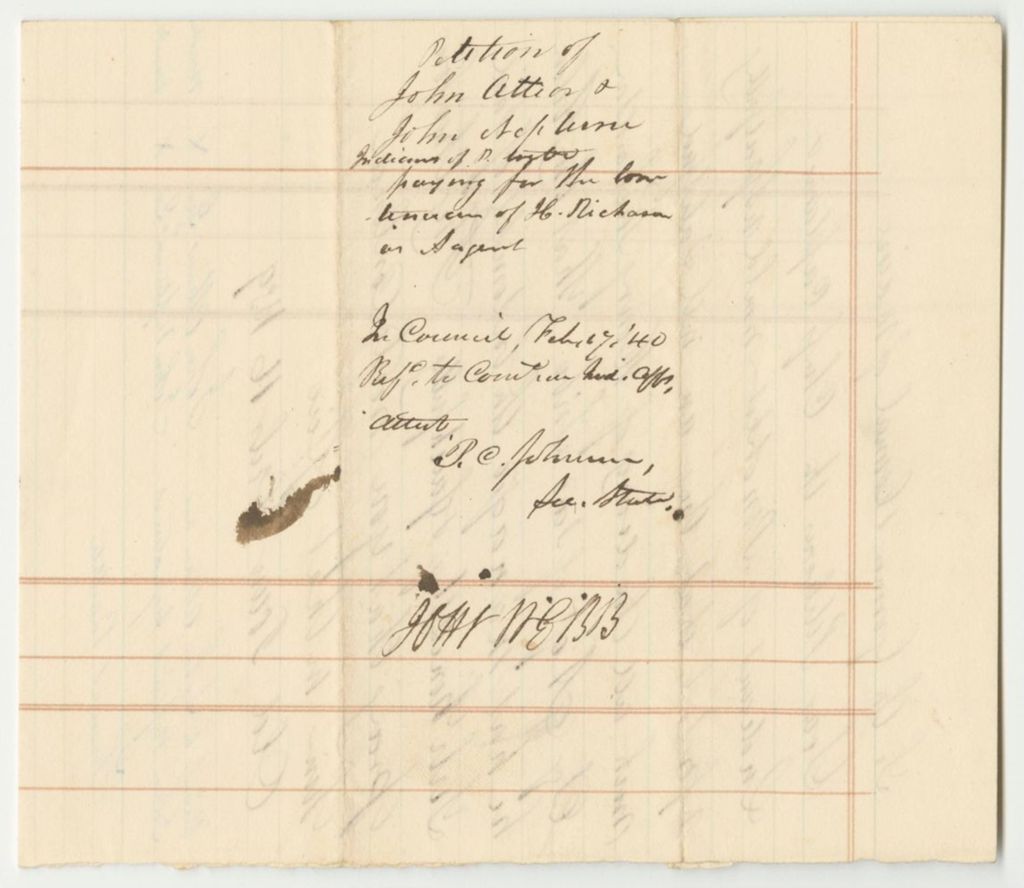 Petition of
John Atteon &
John Neptune
Indians of P. tribe
praying for the con
tinuance of H. Richardson
as Aagent
In Council, Feb. 17, '40
Refd. to Comtee on Ind. Affs,
attest
P. C. Johnson,
Sec. State.
JOHN WEBB